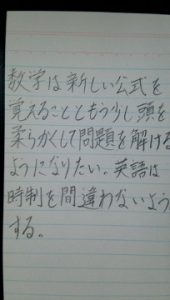 数学は新しい公式を
覚えることともう少し頭を
柔らかくして問題を解ける
ようになりたい。英語は
時制を間違わないよう
する。